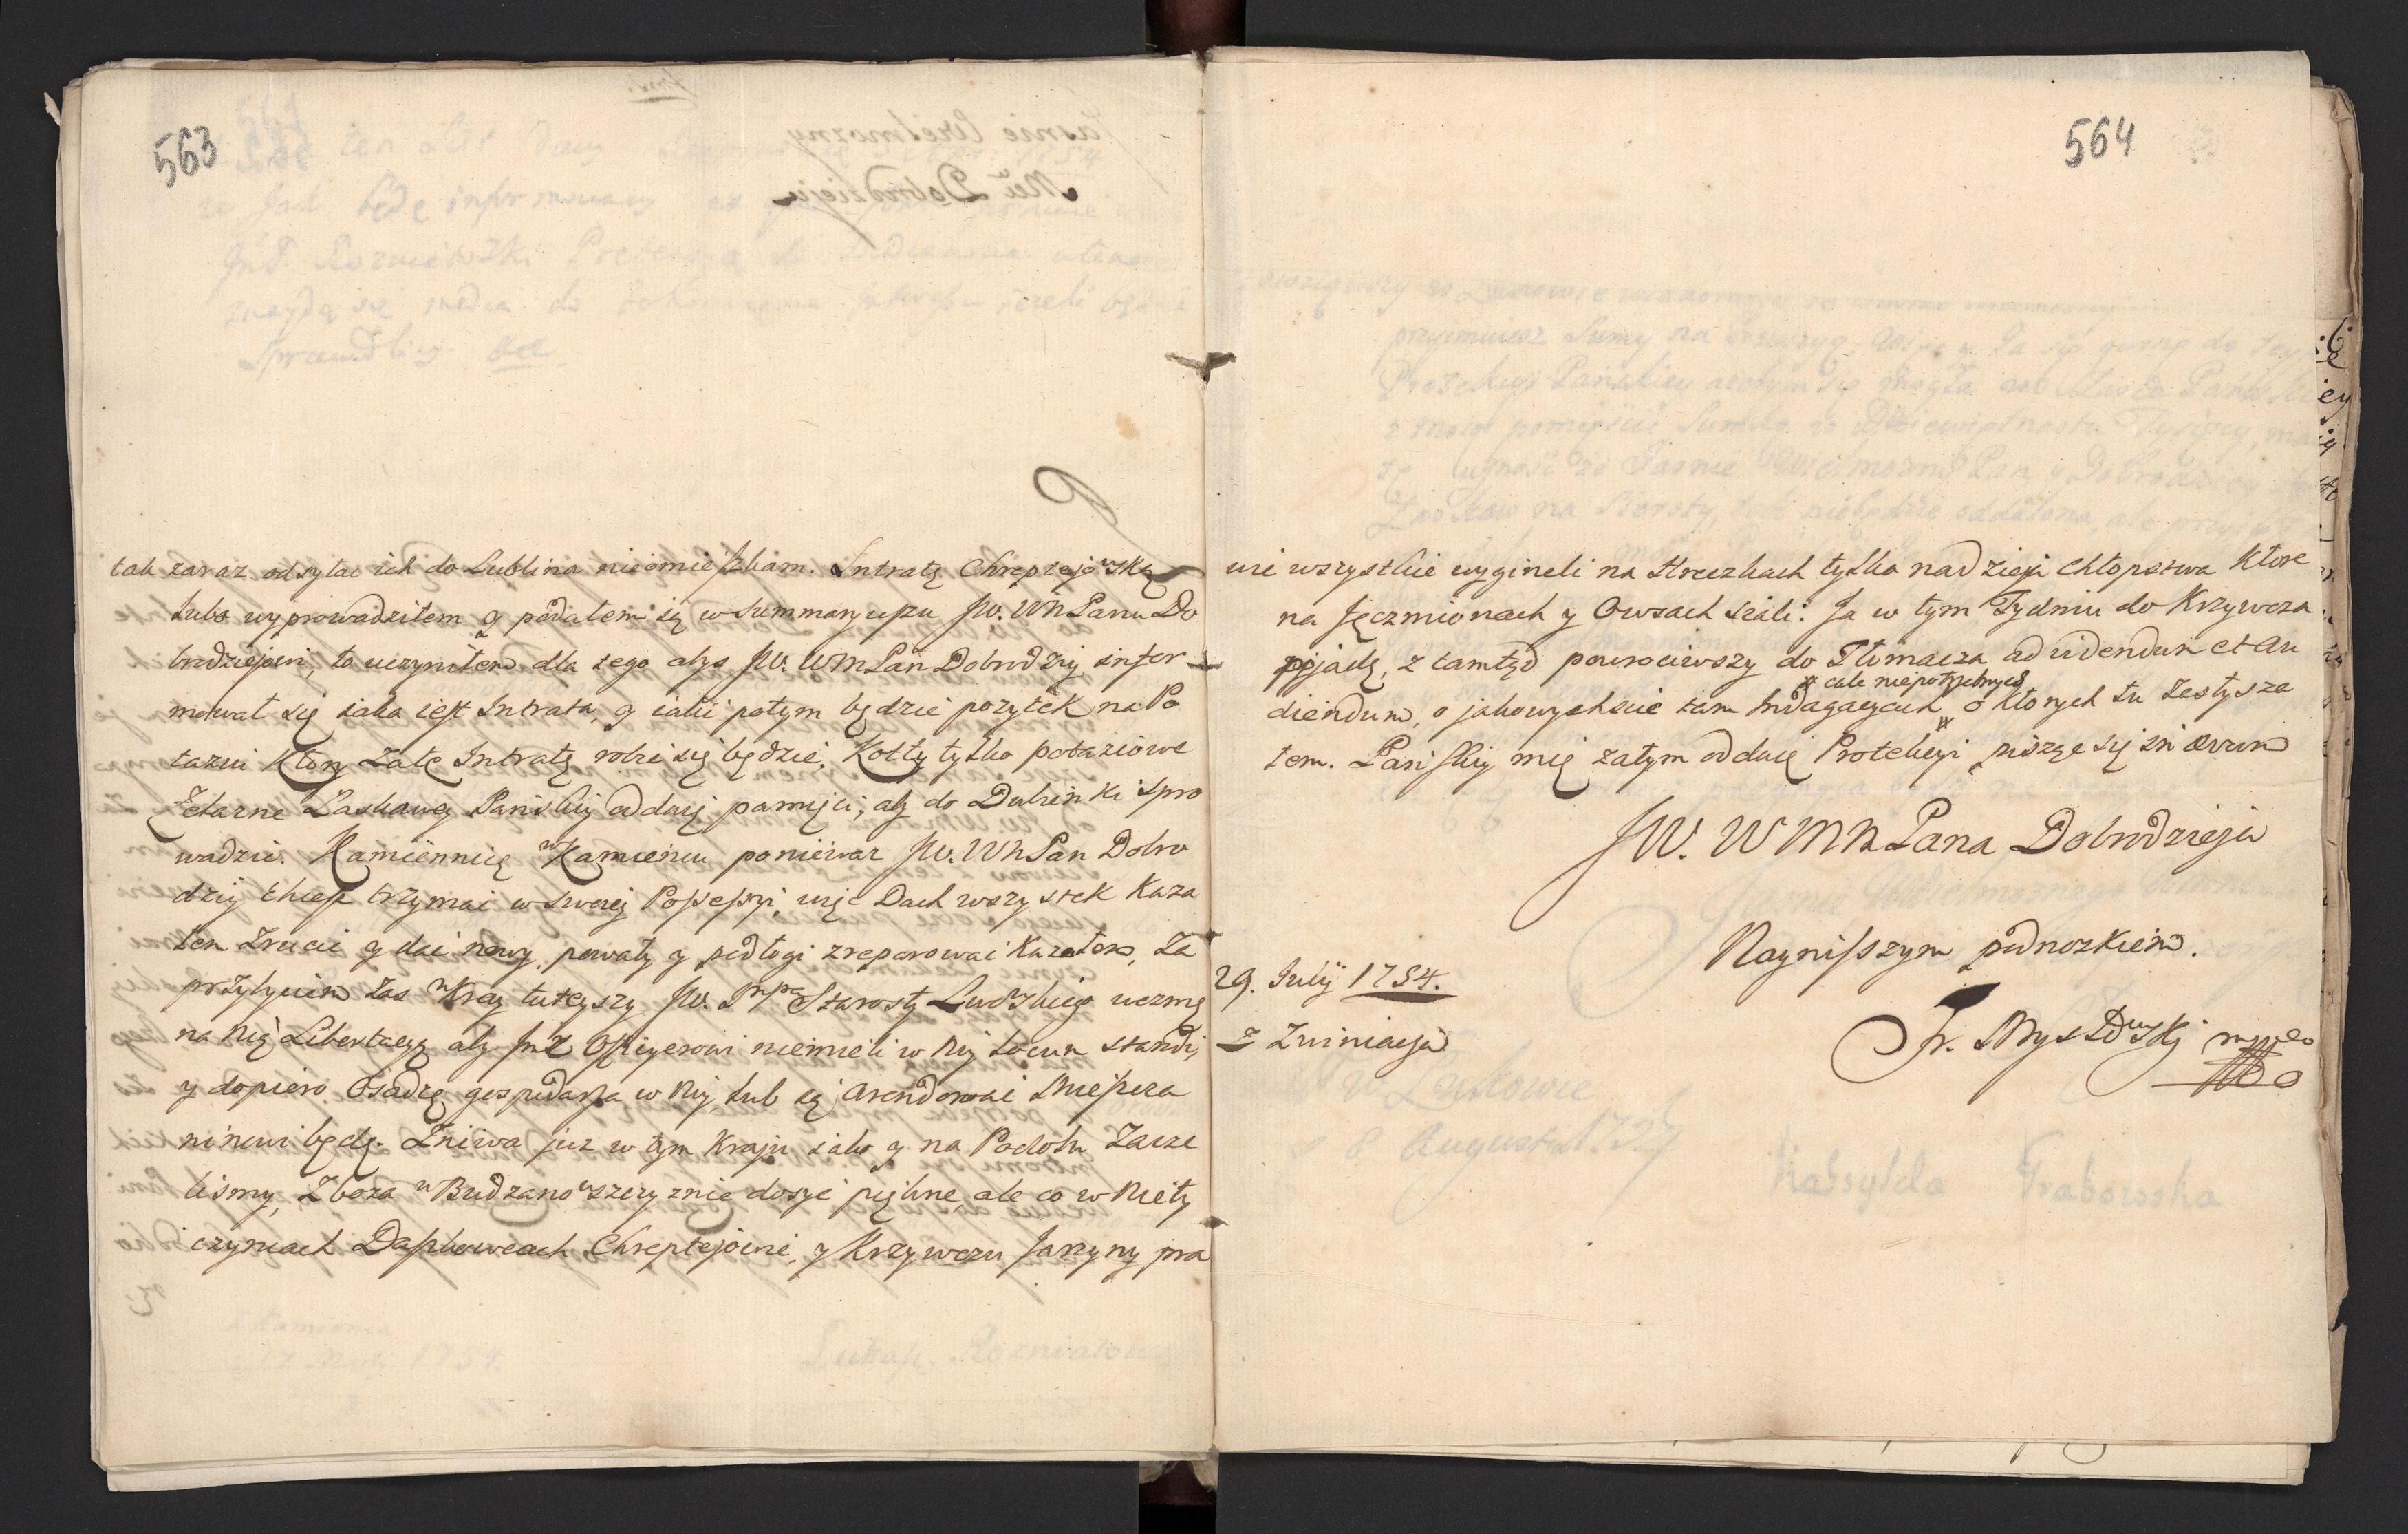 563
tak zaraz odsyłac ich do Lublina nieomieszkam. Intratę Chreptejowską
lubo wyprowadziłem y podałem ią w summaryuszu JW. WM Panu Do
brodziejowi, to uczyniłem dla tego abys JW. WM Pan Dobrodziey infor
mował się iaka iest Intrata, y iaki potym będzie pozytek na Po
tazni Ktory Zatę Intratę robić się będzie. Kotły tylko potaziowe
Zelazne Łaskawey Pańskiey oddaię pamięci, aby do Dubienki spro
wadzić. Kamiennicę w Kamieńcu poniewaz JW. WM Pan Dobro
dziey chcesz trzymać w swoiey Possessyi, więc Dach wszystek Kaza
łem Zrucić y dać nowy, powały y podłogi zreparować Kazałem, Za
przybyciem zas w Kray tuteyszy JW. Starosty uczmę
na Nię Libertacyą aby Officyerowi niemieli w Niy Locum standi,
y dopiero Osadzę gospodarza w Niy, lub ią Arendować Mieszcza
ninowi będę. Zniwa juz w tym Kraju iako y na Podolu Zacze
lismy, Zboza w Budzanowszczyznie dosyć piękne, ale co w Niety
czyncach Daszkowcach Chreptejowie, y Krzywczu Jarzyny pra
564
wie wszystkie wygineli na Hreczkach tylko nadzieja Chłopstwa Ktore
na Jęczmionach y Owsach siali. Ja w tym Tydniu do Krzywcza
pojadę, z tamtąd powrociwszy do Tłumacza ad videndum et au
# cale niepotrzebnych
diendum, o jakowychscie tam Indagacyach # o Ktorych tu Zesłysza
łem. Pańskiy mię zatym oddaię Protekcyi piszęc się in ævum
JW. WMM Pana Dobrodzieja
Nayniszszym podnozkiem.
29. Julij 1754.
z Zwiniacza
Fr. mppo